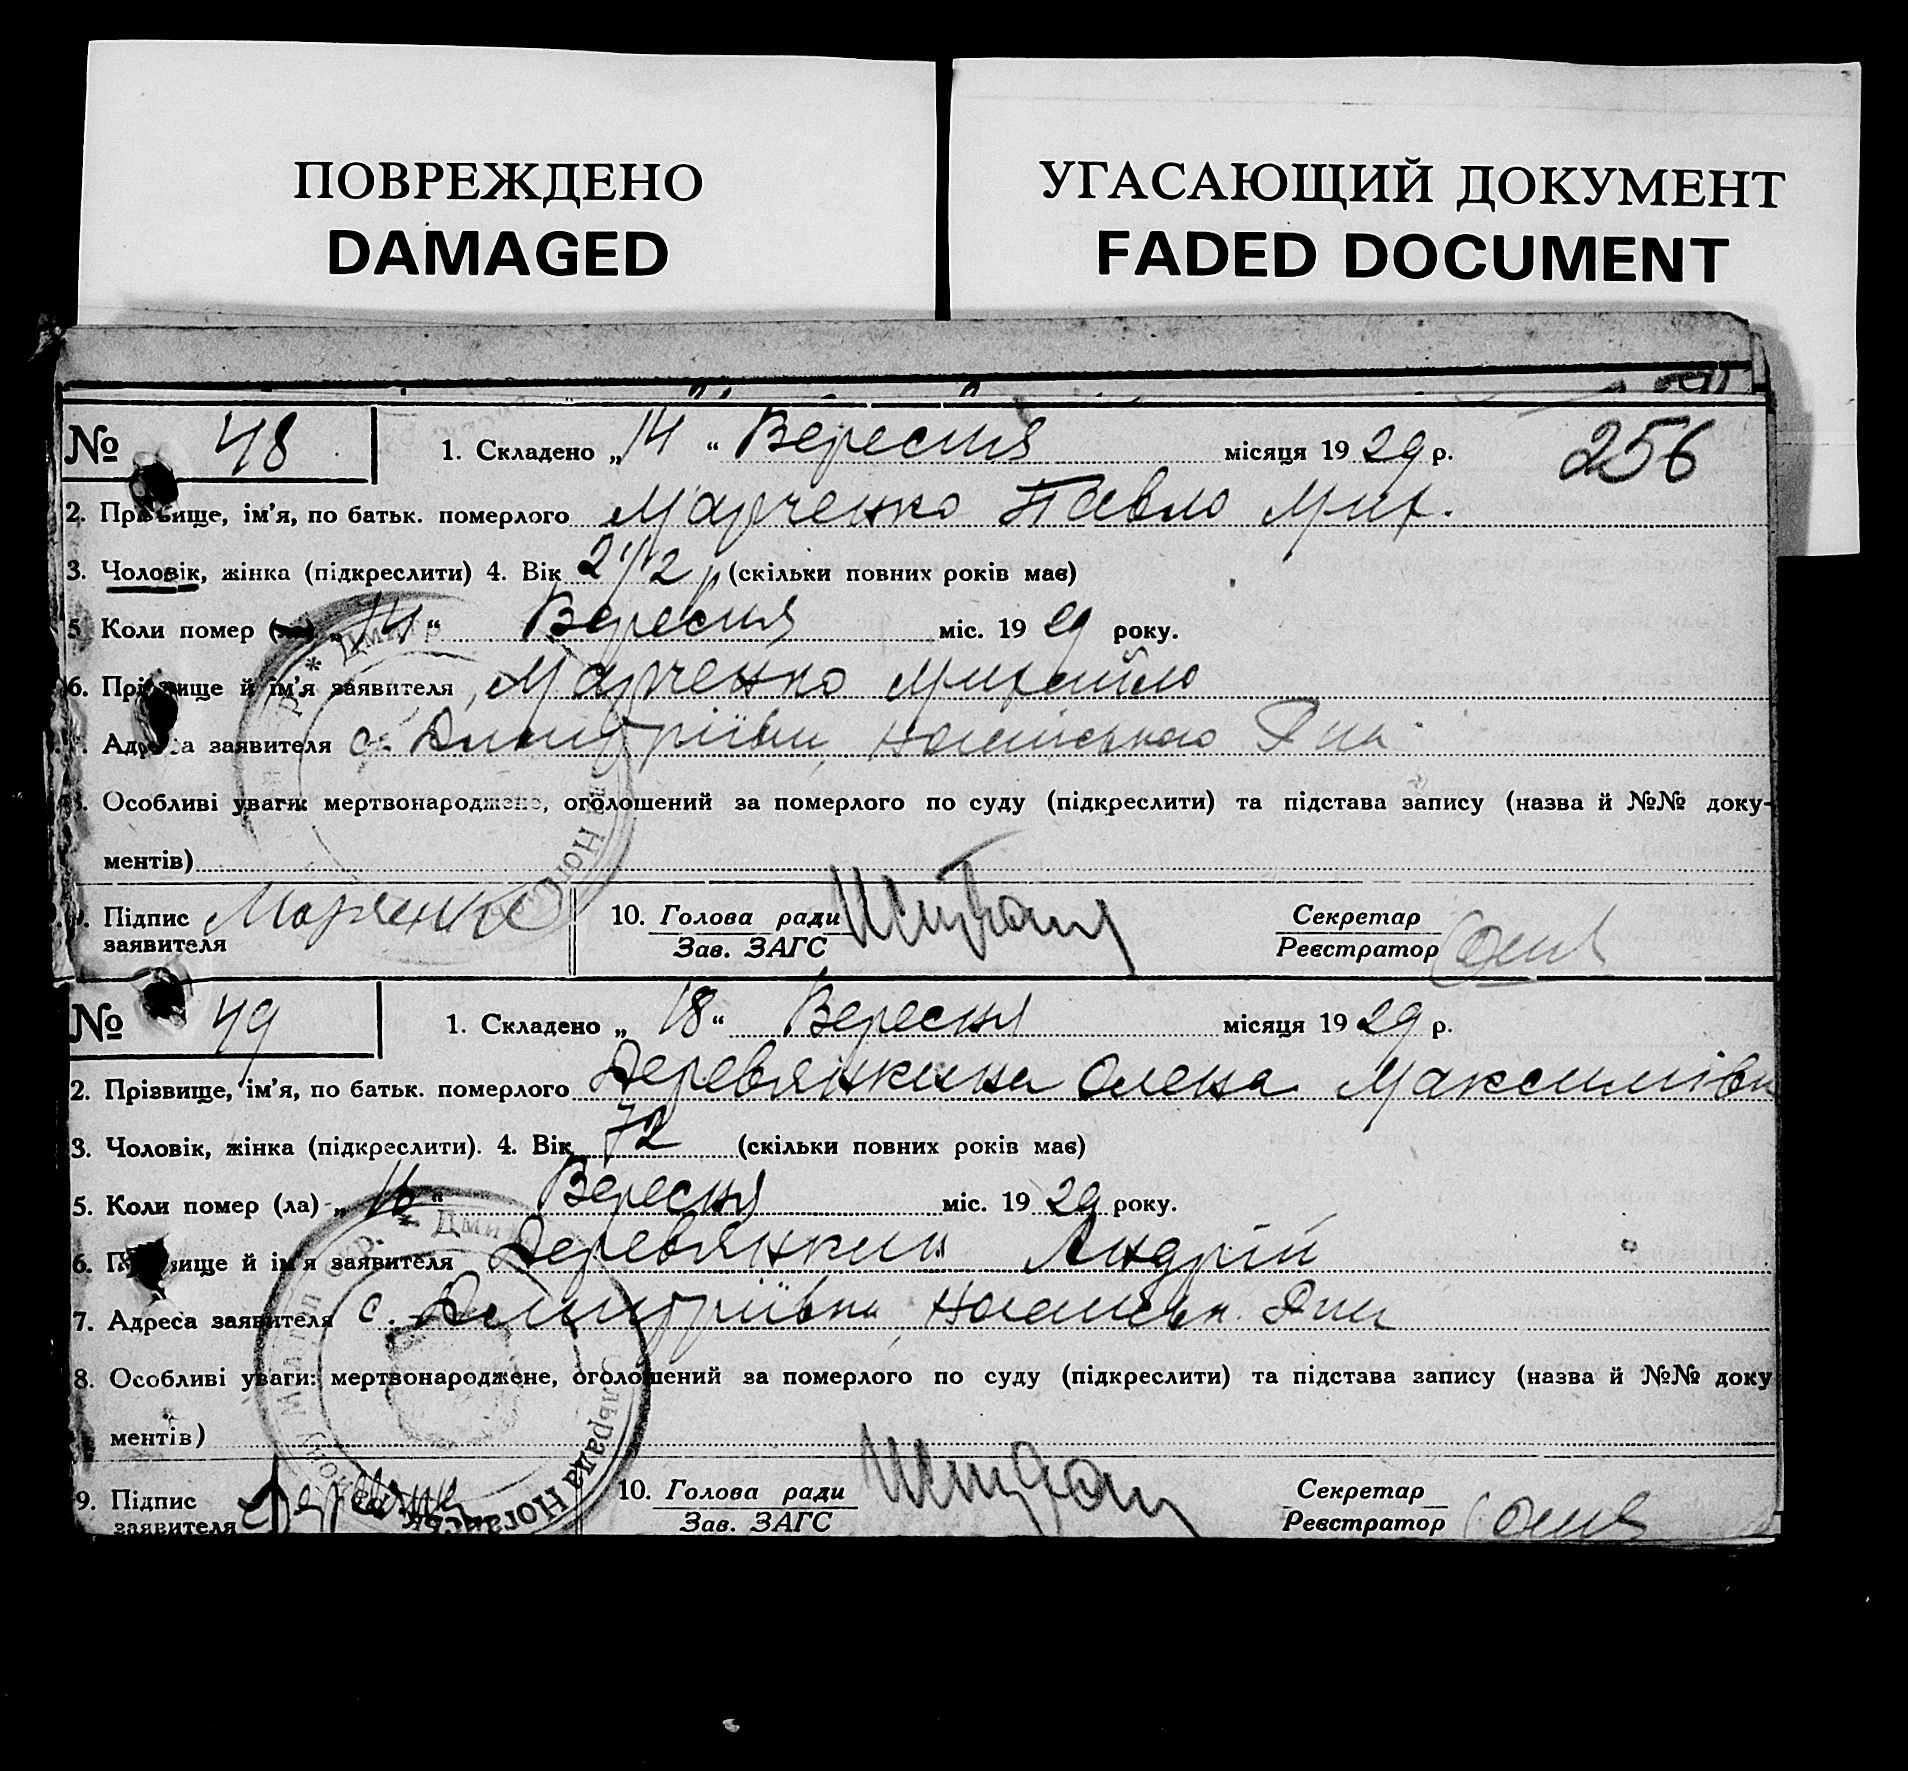 ПОВРЕЖДЕНО
DAMAGED
УГАСАЮЩИЙ ДОКУМЕНТ
FADED DOCUMENT
256
№ 48 1. Складено „14“ Вересня місяця 1929 р.
2. Прізвище, ім'я, по батьк. померлого Марченко Павло Мих.
3. Чоловік, жінка (підкреслити) 4. Вік 2 1/2 р (скільки повних років має)
5. Коли помер (ла) „14“ Вересня міс. 1929 року.
6. Прізвище й ім'я заявителя Марченко Михайло
7. Адреса заявителя с. Дмитріївки,
8. Особливі уваги: мертвонароджене, оголошений за померлого по суду (підкреслити) та підстава запису (назва й №№ доку-
ментів)
9. Підпис заявителя Марченко 10. Голова ради Зав. ЗАГС Секретар Реєстратор
№ 49 1. Складено „18“ Вересня місяця 1929 р.
2. Прізвище, ім'я, по батьк. померлого Деревянкина Олена Максимівн
3. Чоловік, жінка (підкреслити). 4. Вік 72 (скільки повних років має)
5. Коли помер (ла) „16“ Вересня міс. 1929 року.
6. Прізвище й ім'я заявителя Деревянкин Андрій
7. Адреса заявителя с. Дмитріївки,
8. Особливі уваги: мертвонароджене, оголошений за померлого по суду (підкреслити) та підстава запису (назва й №№ доку
ментів)
9. Підпис заявителя 10. Голова ради Зав. ЗАГС Секретар Реєстратор